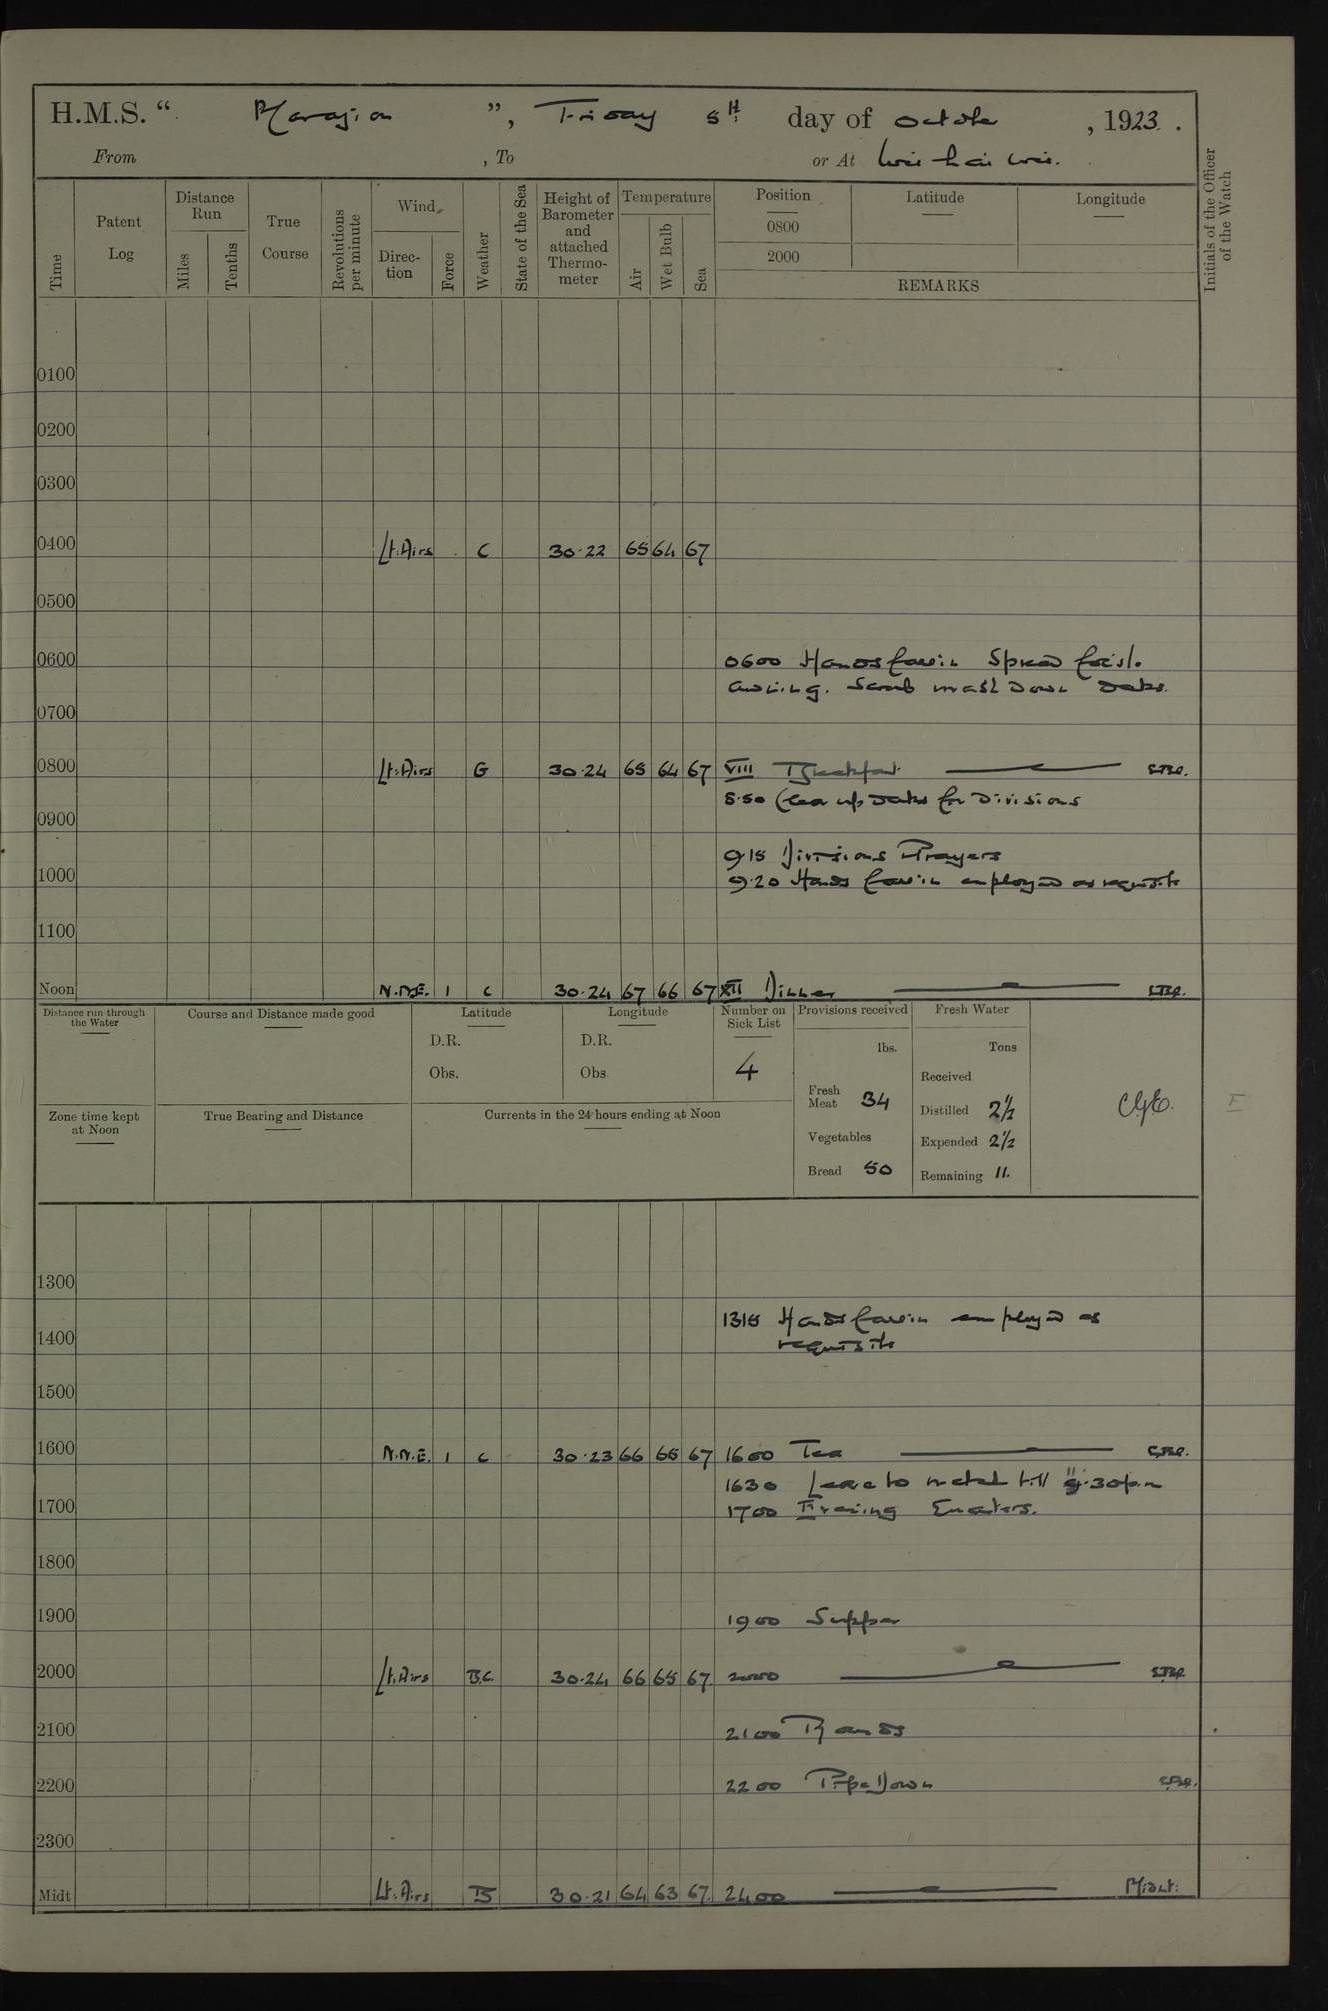 H.M.S. “ Marazion ”, Friday 5th day of October, 1923.
From , To or At Wei-hai-wei.
Time
Patent Log
Distance Run
Miles
Tenths
True Course
Revolutions per minute
Wind
Direc-tion
Force
Weather
State of the Sea
Height of Barometer and attached Thermo-meter
Temperature
Air
Wet Bulb
Sea
Position
Latitude
Longitude
0800
2000
REMARKS
Initials of the Officer of the Watch
0100
0200
0300
0400 Lt. Airs C 30.22 65 64 67
0500
0600 0600 Hands fall in Spread foc'sle
awning. Scrub wash down decks.
0700
0800 Lt. Airs G 30.24 65 64 67 VIII Breakfast
8.50 Clear up decks for Divisions
0900
915 Divisions Prayers
1000 9.20 Hands fall in employed as requisite
1100
Noon N.N.E. 1 C 30.24 67 66 67 XII Dinner
Distance run through the Water
Course and Distance made good
Latitude
D.R.
Obs.
Longitude
D.R.
Obs.
Number on Sick List
4
Provisions received
lbs.
Fresh Meat 34
Vegetables
Bread 50
Fresh Water
Tons
Received
Distilled 2½
Expended 2½
Remaining 11.
Zone time kept at Noon
True Bearing and Distance
Currents in the 24 hours ending at Noon
1300
1315 Hands fall in employed as
1400 requisite
1500
1600 N.N.E. 1 C 30.23 66 65 67 1600 Tea
1630 Leave to watch till 11.30 p.m
1700 1700 Evening Quarters.
1800
1900 1900 Supper
2000 Lt. Airs B.C. 30.24 66 65 67 2000
2100 2100 Rounds
2200 2200 Pipe Down
2300
Midt Lt. Airs B 30.21 64 63 67 2400 Midnt.